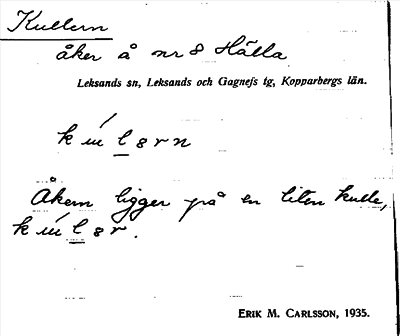 Kullern
åker å nr 8 Hälla
Leksands sn, Leksands och Gagnefs tg, Kopparbergs län.
Åkern ligger på en liten kulle,
ERIK M. CARLSSON, 1935.